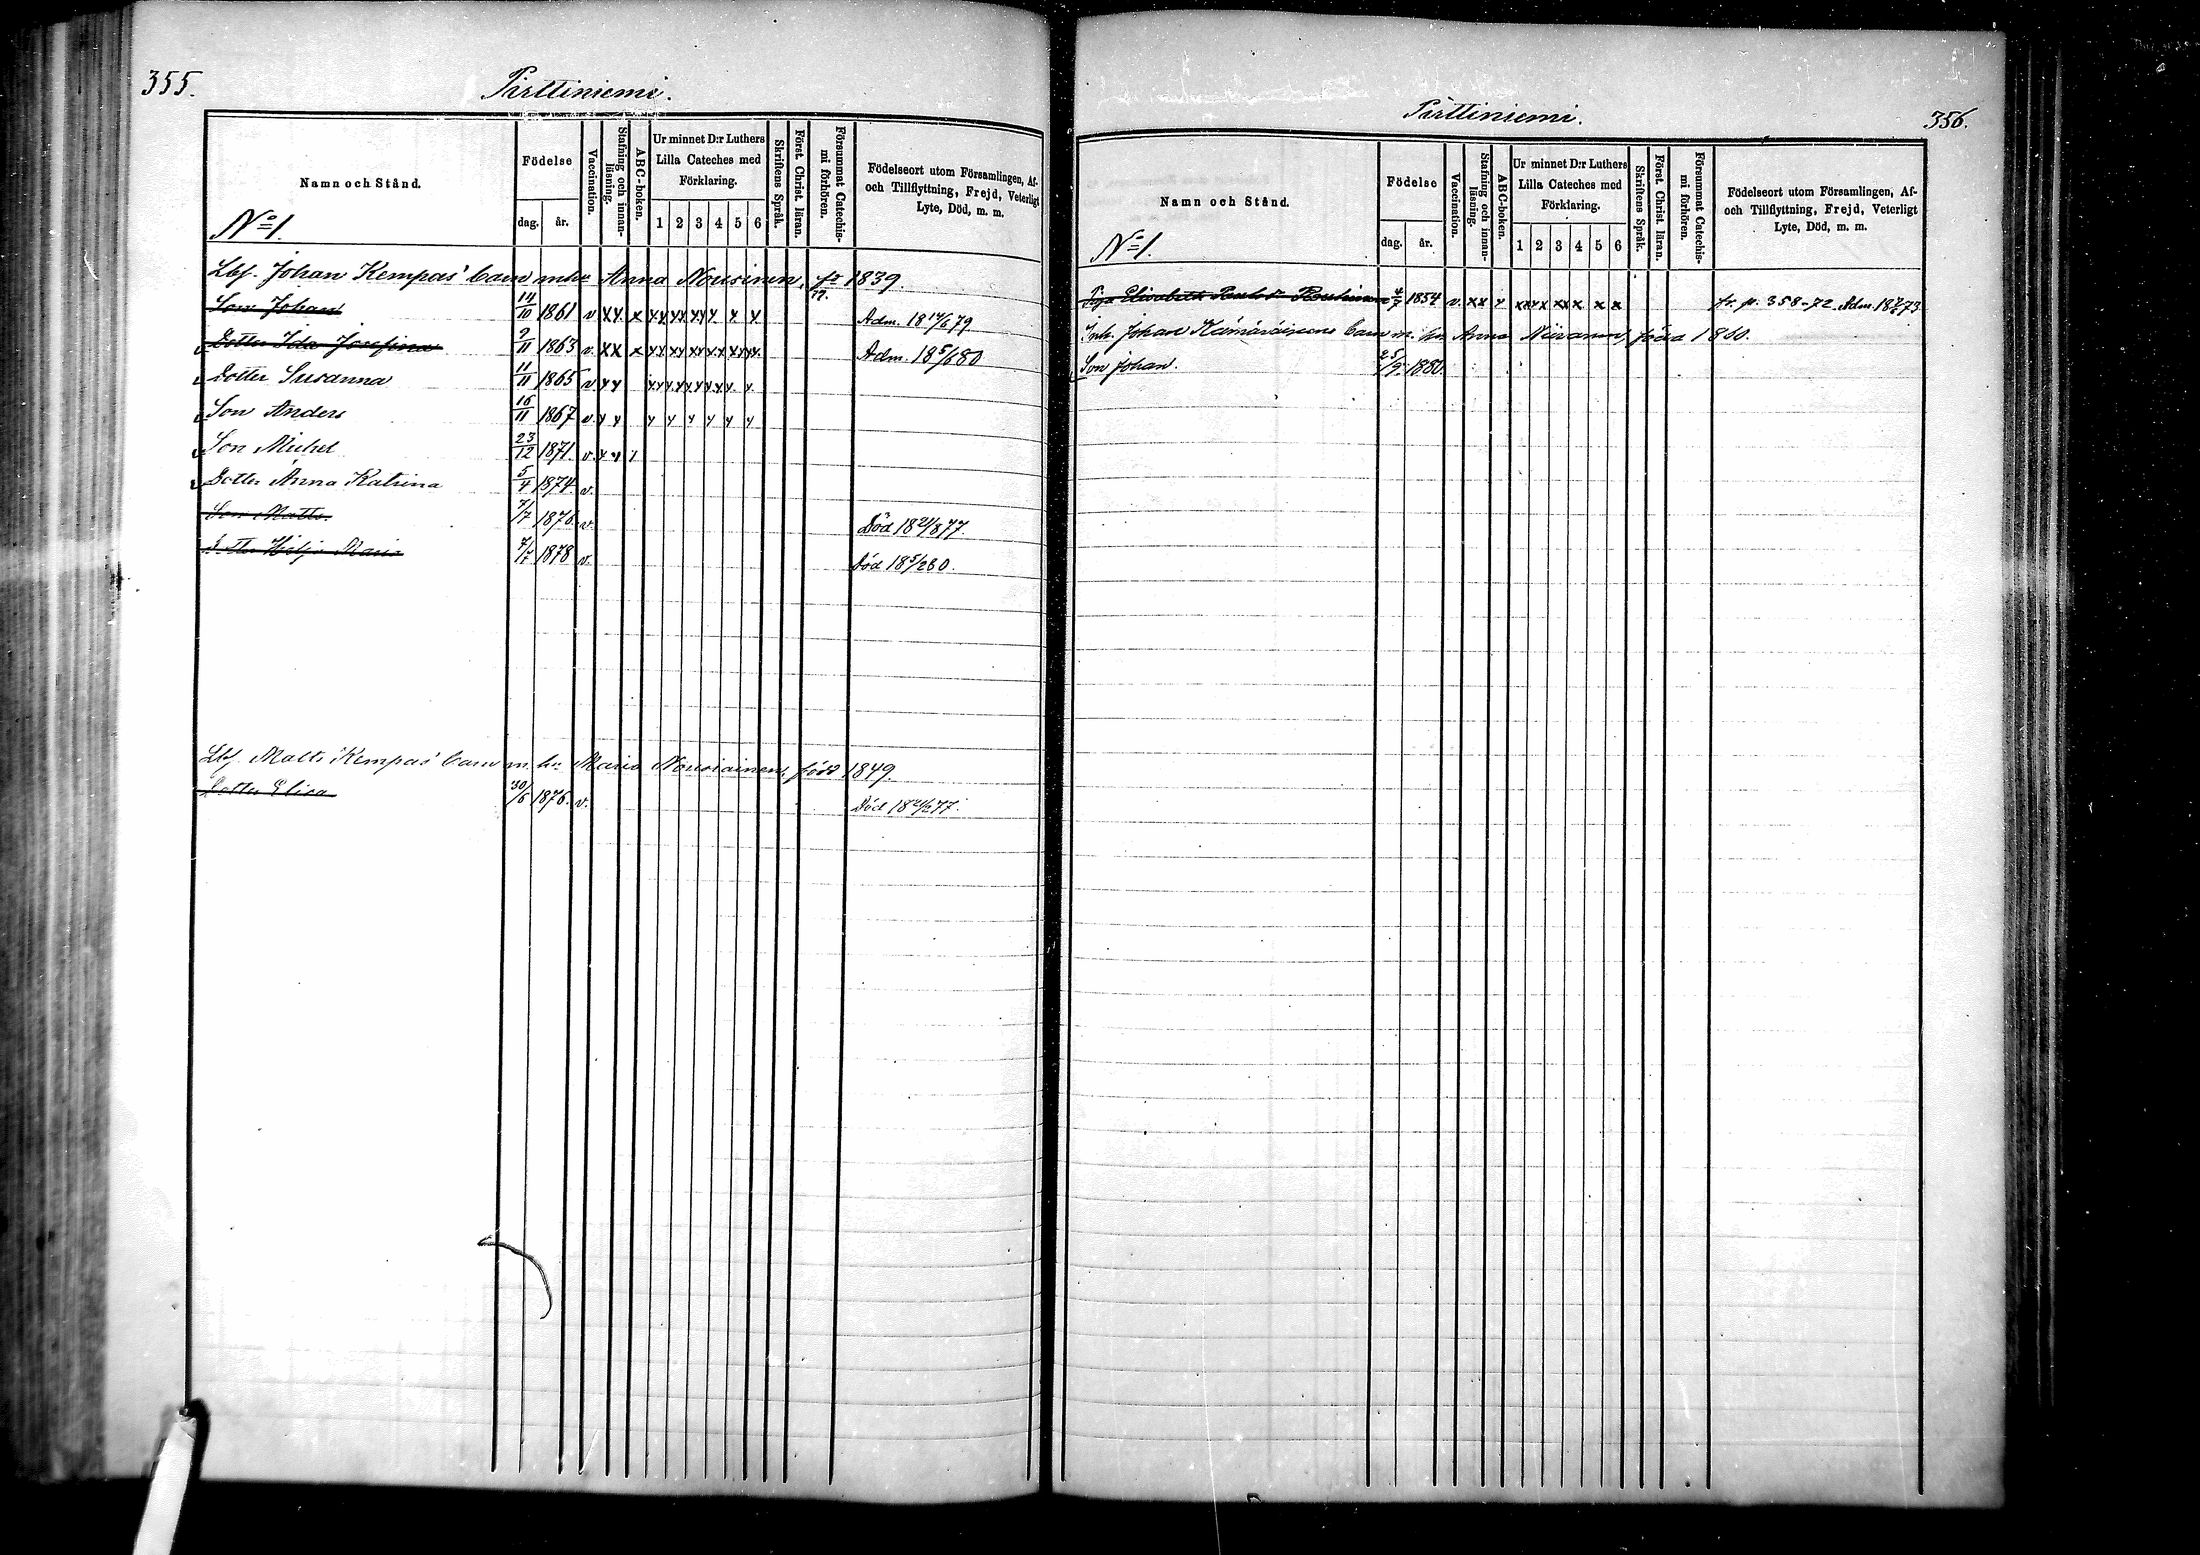 355.
Pärttiniemi.
Namn och Stånd.
Födelse
dag. år.
Vaccination.
Stafning och innanläsning.
ABC-boken.
Ur minnet D:r Luthers Lilla Cateches med Förklaring.
1 2 3 4 5 6
Skriftens Språk.
Först. Christ. läran.
Försummat Catechismi förhören.
Födelseort utom Församlingen, Af- och Tillflyttning, Frejd, Veterligt Lyte, Död, m. m.
No 1.
Lbf. Johan Kempas' barn m hu Anna Nousinen, 1839.
Son Johan 14/10 1861 v x x x Adm. 18 14/6 79
Dotter Ida Josefina 2/11 1863 v. x x x Adm. 18 5/6 80
Dotter Susanna 11/11 1865 v x x
Son Anders 16/11 1867 v. x x x x x x x x
Son Michel 23/12 1871. v. x x x
Dotter Anna Katrina 5/4 1874. v.
Son Matts. 7/7 1876. v. Död 18 21/8 77.
Dotter Hilja Maria 1878 v. Död 18 5/2 80.
Lbf. Matts Kempas' barn m. hu Maria Nousiainen, född 1849.
Dotter Elisa 30/6 1876. v. Död 77.
Pärttiniemi.
356.
Namn och Stånd.
Födelse
dag. år.
Vaccination.
Stafning och innanläsning.
ABC-boken.
Ur minnet D:r Luthers Lilla Cateches med Förklaring.
1 2 3 4 5 6
Skriftens Språk.
Först. Christ. läran.
Försummat Catechismi förhören.
Födelseort utom Församlingen, Af- och Tillflyttning, Frejd, Veterligt Lyte, Död, m. m.
No 1.
Piga Elisabeth 4/7 1854 v. x x x fr. p. 358-72. Adm. 73
Inh. Johan barn m. hu Anna född 1860.
Son Johan. 25/9 1880.